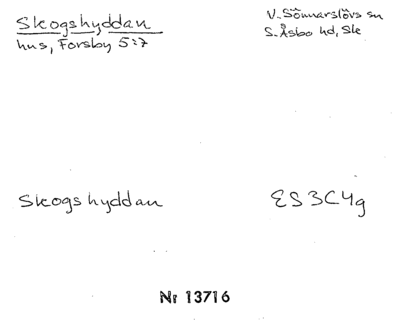 Skogshyddan
hus, Forsby 5:7
V. Sönnarslövs sn
S. Åsbo hd, Sk
Skogshyddan
ES 3C4g
Nr 13716